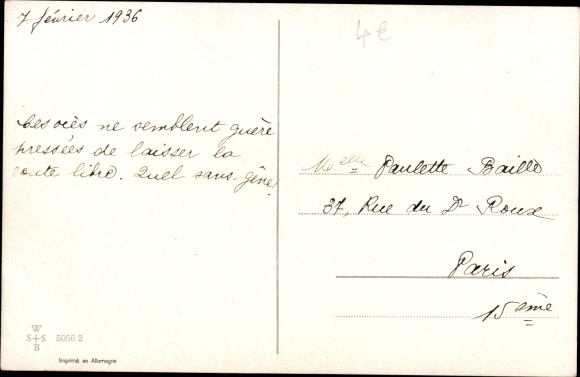 7 février 1936
4€
Ces oies ne semblent guère
pressées de laisser la
route libre. Quel sans-gêne!
Melle Paulette Baille
37, Rue du Dr Roux
Paris
15ème
W
S+S
B
5056.2
Imprimé en Allemagne